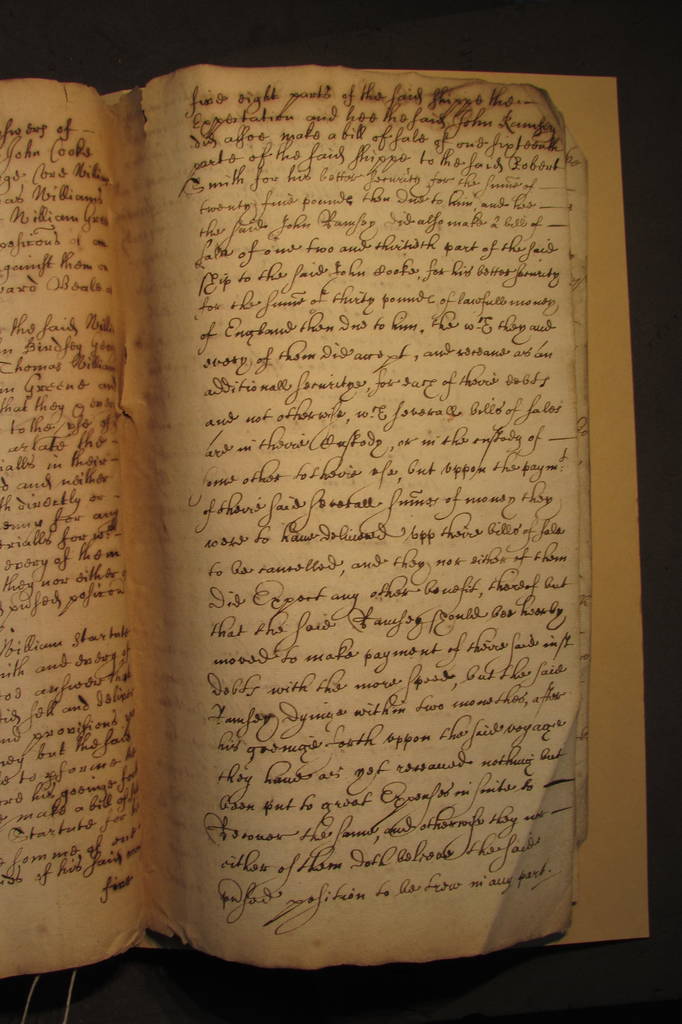 fswers of
John Cooke
William
as Williams
William Gre
positions of an
against them
ward Beale
the said Will
n Bindsey
Thomas William
n Greene and
that they
to the use of
in their
and neither
th directly or
for any
every of them
they nor either
position
William Startute
ith and every of
answere that
did sell and deliver
provisions
but the said
to performe
his goeinge
make a bill of
Startute for
somme of
of his said
five
five eight parts of the said shippe the
Expectation and hee the said John Ramsey
did allsoe make a bill of sale of one sixteenth
parte of the said shippe to the said Robert
Smith for his better security for the sume of
twenty five pounds then due to him, and hee
the said John Ramsey did also make a bill of
sale of one two and thirtieth part of the said
ship to the said John Cooke, for his better security
for the sume of thirty pounds of lawfull money
of England then due to him. The wch they and
every of them did accept, and receave as an
additionall securitye, for each of theire debts
and not otherwise, wch severall bills of sales
are in theire Custody, or in the custody of
some other to theire use, but uppon the paymt
of theire said severall sumes of money they
were to have delivered upp theire bills of sale
to be cancelled, and they nor either of them
did Expect any other benefit, thereof but
that the said Ramsey should bee heerby
moved to make payment of theire said just
debts with the more speed, but the said
Ramsey dyinge within two monethes, after
his goeinge forth uppon the said voyage
they have as yet receaved nothing but
been put to great Expenses in suite to
Recover the same, and otherwise they nor
either of them doth beleeve the said
pnsed position to be trew in any part.